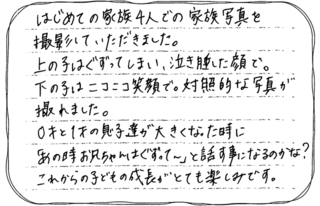 はじめての家族4人での家族写真を
撮影していただきました。
上の子はぐずってしまい、泣き腫した顔で。
下の子はニコニコ笑顔で。対照的な写真が
撮れました。
0才と1才の息子達が大きくなった時に
あの時お兄ちゃんはぐずって～」と話す事になるのかな?
これからの子どもの成長がとても楽しみです。